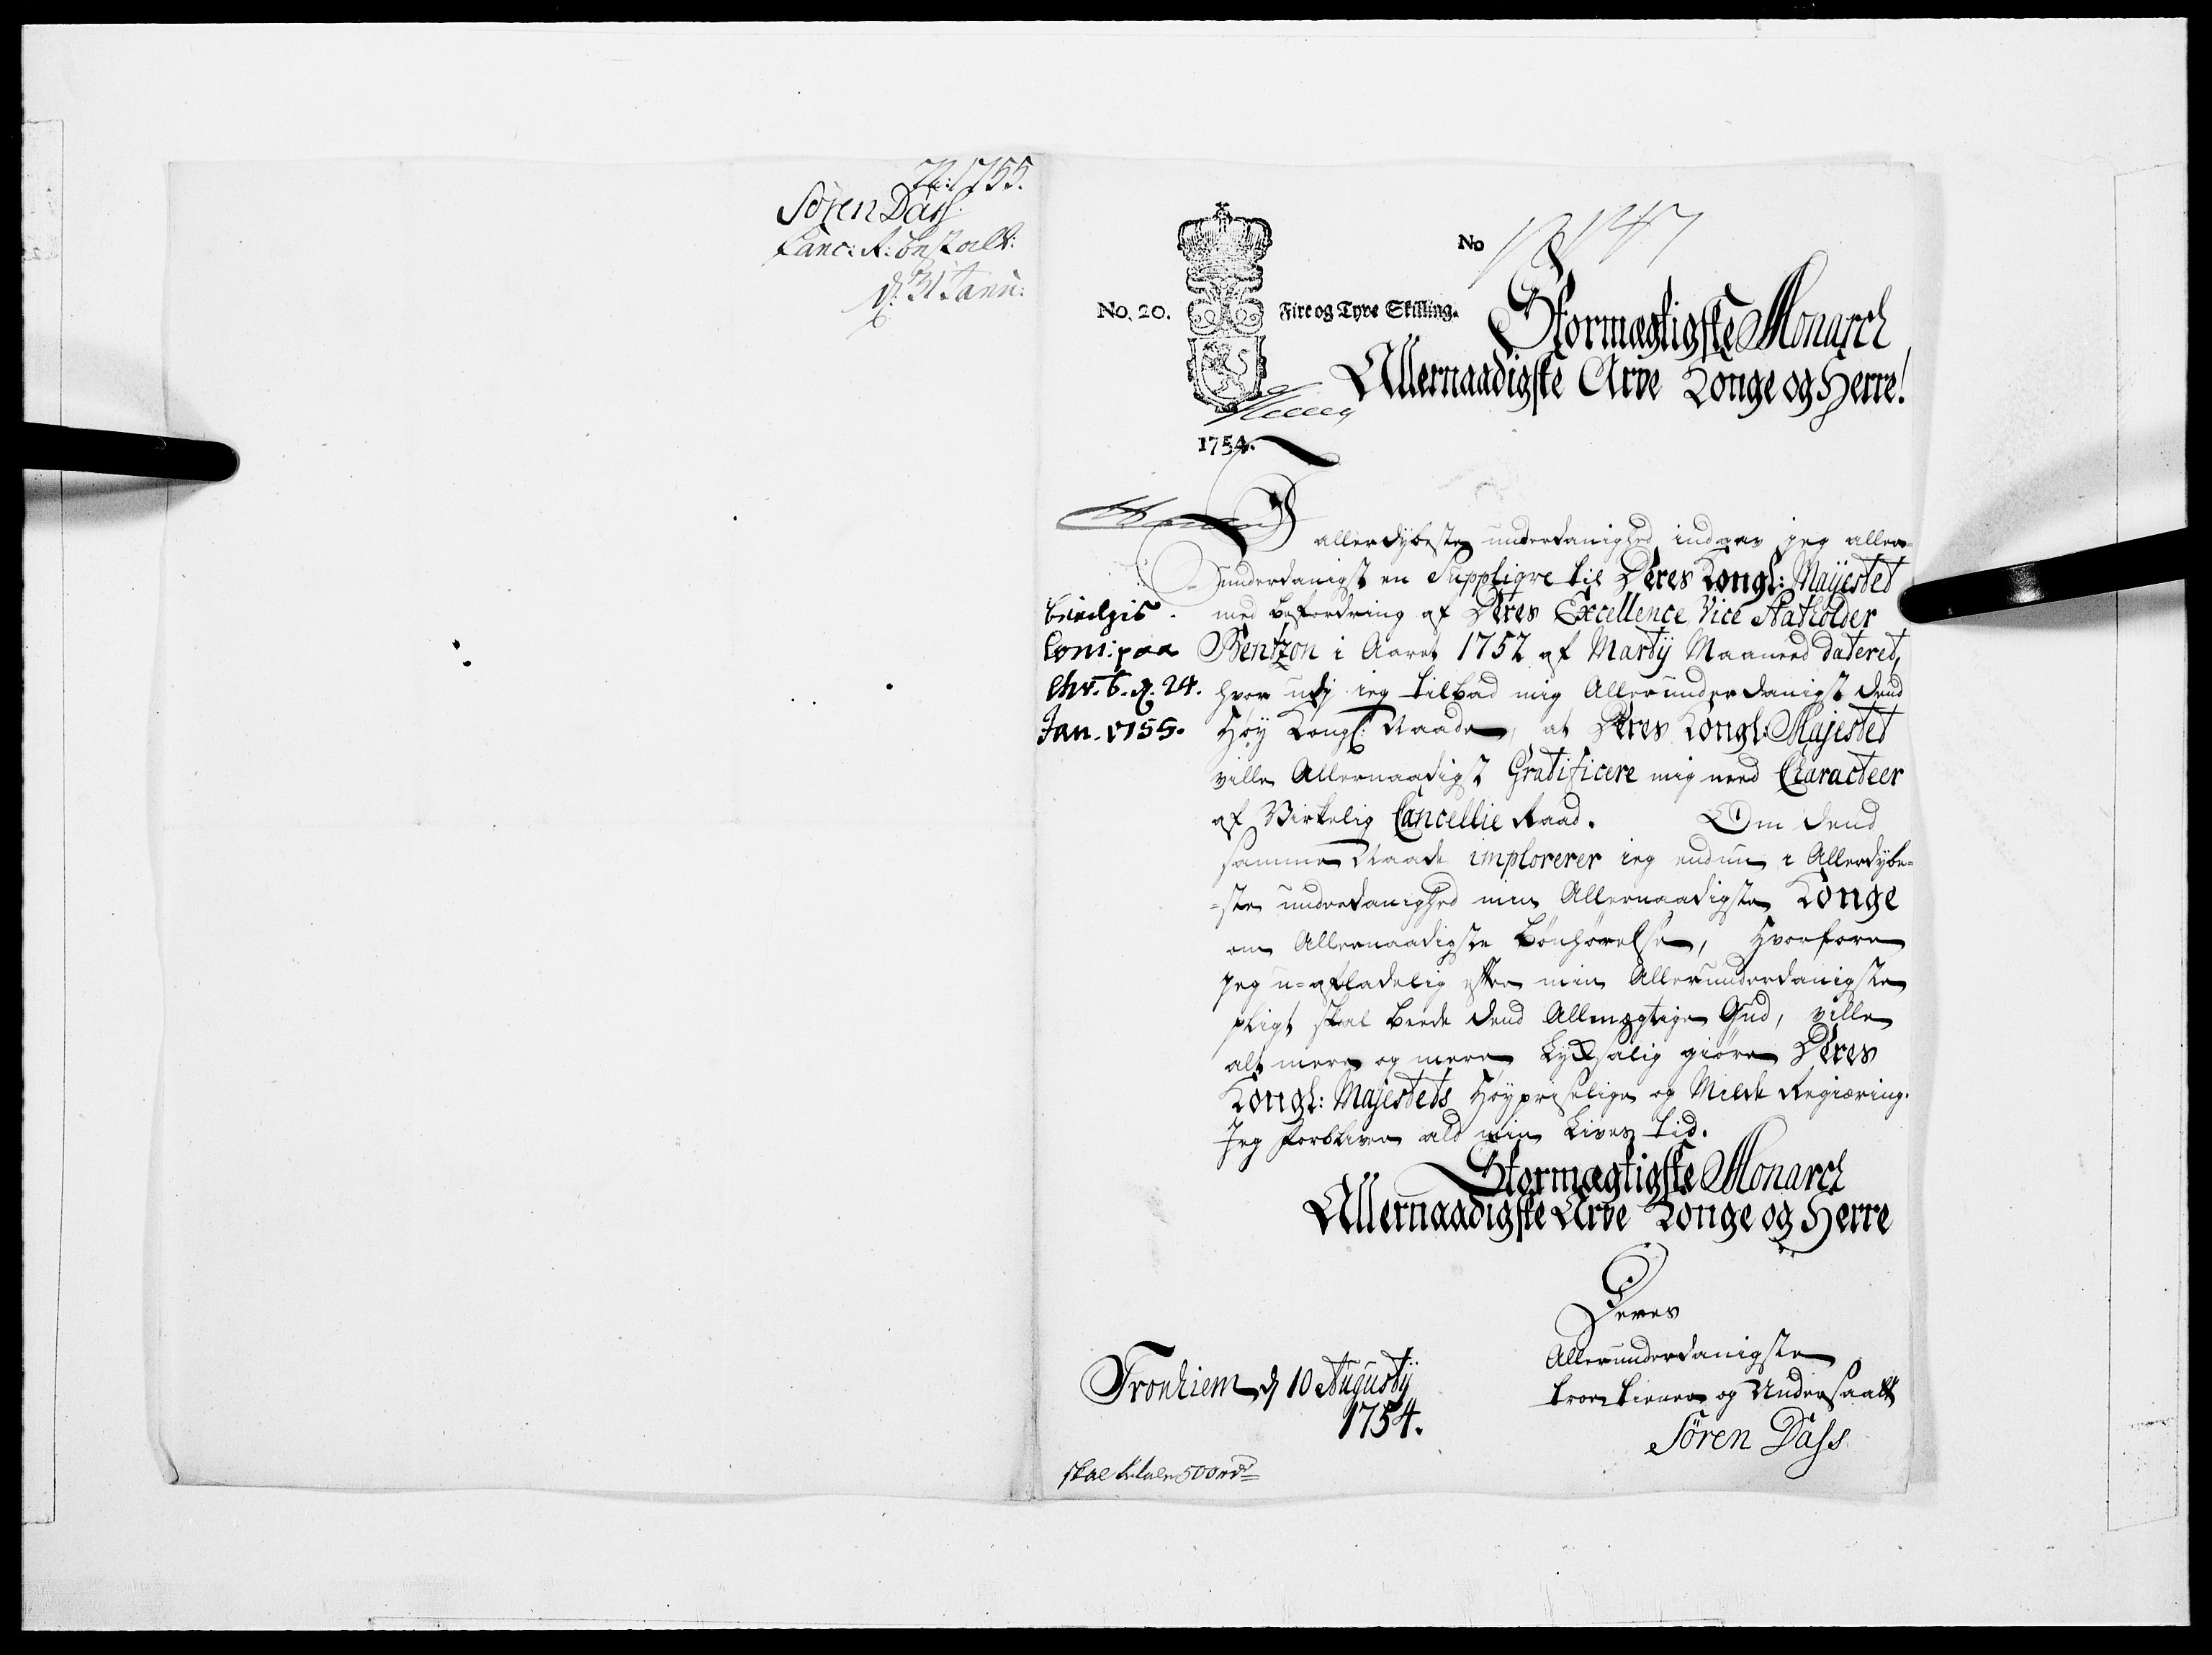 72: 1755.
Søren Dass.
Canc: R: bestall:
d. 31 Janu:
No
No. 20. Fire og Tyve Skilling.
Stormægtigste Monarch
Allernaadigste Arve Konge og Herre!
1754.
I allerdybeste underdanighed indgav jeg aller-
underdanigst en Suppliqve til Deres Kongl: Mayestet
med befordring af Deres Excellence Vice Statholder
Bentzon i Aaret 1752 af Marty Maaned dateret,
hvor udj ieg tilbad mig Allerunderdanigst dend
Høy Kongl: Naade, at Deres Kongl: Majestet
ville Allernaadigst Gratificere mig med Characteer
af Virkelig Cancellie Raad. Om dend
samme Naade implorerer ieg endnu i Allerdybe-
-ste underdanighed min Allernaadigste Konge
om Allernaadigste Bønhørelse, hvorfore
jeg u-afladelig efter min Allerunderdanigste
pligt skal beede dend Allmægtige Gud, ville
alt mere og mere Lyksalig giøre Deres
Kongl: Majestets Høypriselige og Milde Regiæring.
Jeg forbliver ald min Lives tid.
bevilges
Conf: paa
Chr. b. d. 24.
Jan. 1755.
Stormægtigste Monarch
Allernaadigste Arve Konge og Herre
Deres
Allerunderdanigste
troe tiener og Undersaatt
Søren Dass
Tronhiem d 10 Augusty
1754.
skal betale 500 rdr